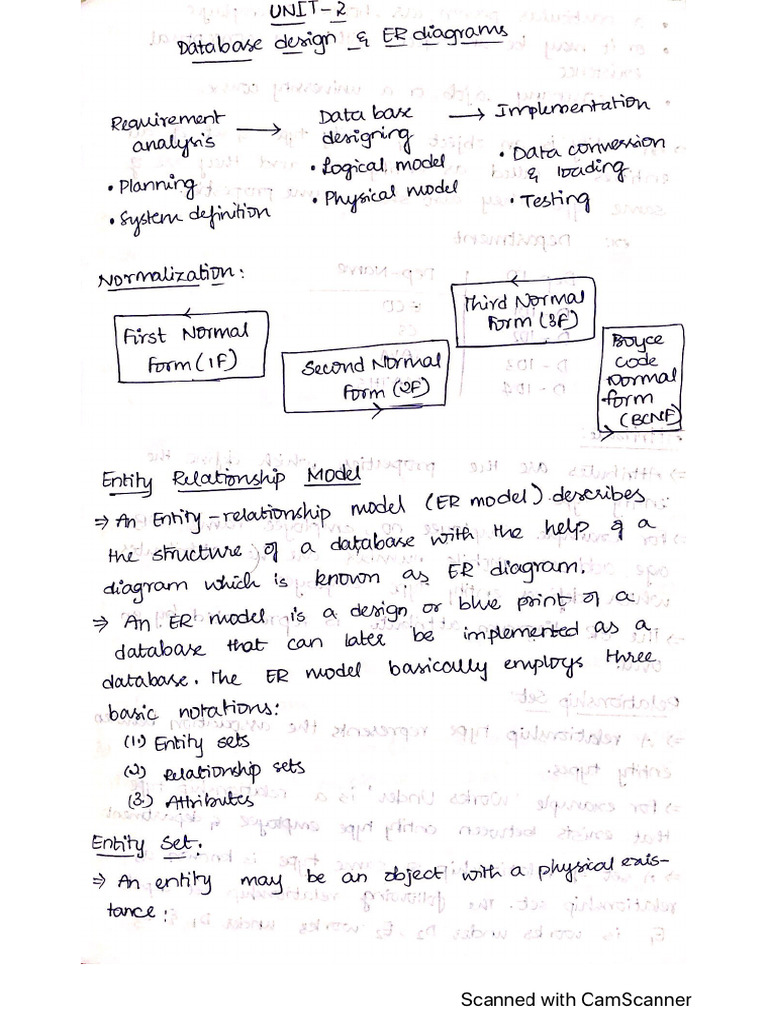 UNIT-2
Database design & ER diagrams
Requirement analysis → Data base designing → Implementation
• Planning
• System definition
• Logical model
• Physical model
• Data conversion & loading
• Testing
Normalization:
First Normal Form (1F)
Second Normal Form (2F)
Third Normal Form (3F)
Boyce Code Normal form (BCNF)
Entity Relationship Model
⇒ An Entity-relationship model (ER model) describes
the structure of a database with the help of a
diagram which is known as ER diagram.
⇒ An ER model is a design or blue print of a
database that can later be implemented as a
database. The ER model basically employs three
basic notations:
(1) Entity sets
(2) Relationship sets
(3) Attributes
Entity Set.
⇒ An entity may be an object with a physical exis-
tance:
Scanned with CamScanner